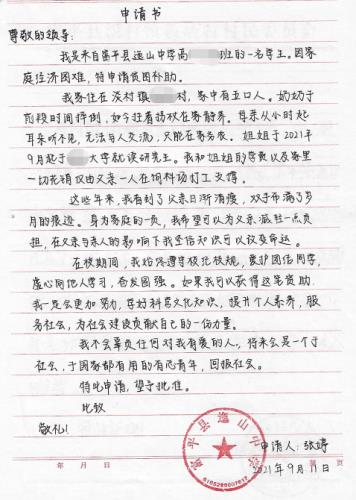 申请书
尊敬的领导：
我是来自富平县迤山中学高 班的一名学生。因家
庭经济困难，特申请贫困补助。
我家住在淡村镇 村，家中有五口人。奶奶于
前段时间摔倒，如今拄着拐杖在家静养。母亲从小时起
耳朵听不见，无法与人交流，只能在家务农。姐姐于2021年
9月起于 大学就读研究生。我和姐姐的学费以及家里
一切花销仅由父亲一人在饲料场打工支撑。
这些年来，我看到了父亲日渐消瘦，双手布满了岁
月的痕迹。身为家庭的一员，我希望可以为父亲减轻一点负
担，在父亲与亲人的影响下我坚信知识可以改变命运。
在校期间，我始终遵守校纪校规，爱护团结同学，
虚心向他人学习，奋发图强。如果我可以获得这笔资助，
我一定会更加努力，学好科学文化知识，提升个人素养，服
务社会，为社会建设贡献自己的一份力量。
我不会辜负任何对我有爱的人，将来会是一个于
社会，于国家都有用的有志青年，回报社会。
特此申请，望予批准。
此致
敬礼！
申请人：张婷
2021年9月11日
富平县迤山中学
年 月 日
第 页